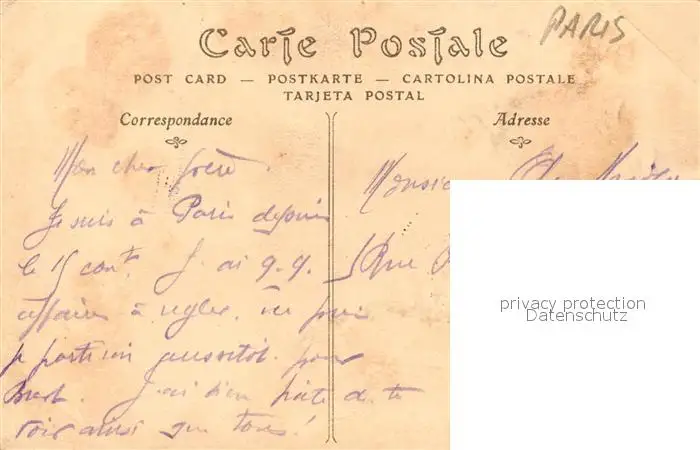 PARIS
Carte Postale
POST CARD — POSTKARTE — CARTOLINA POSTALE
TARJETA POSTAL
Correspondance
Adresse
Mon cher frère
Je suis à Paris depuis
le 15 cont. J'ai q.q.
affaires à régler
je partirai aussitôt pour
Brest. J'ai bien hâte de te
voir ainsi que tous!
Monsieur
Rue
privacy protection
Datenschutz